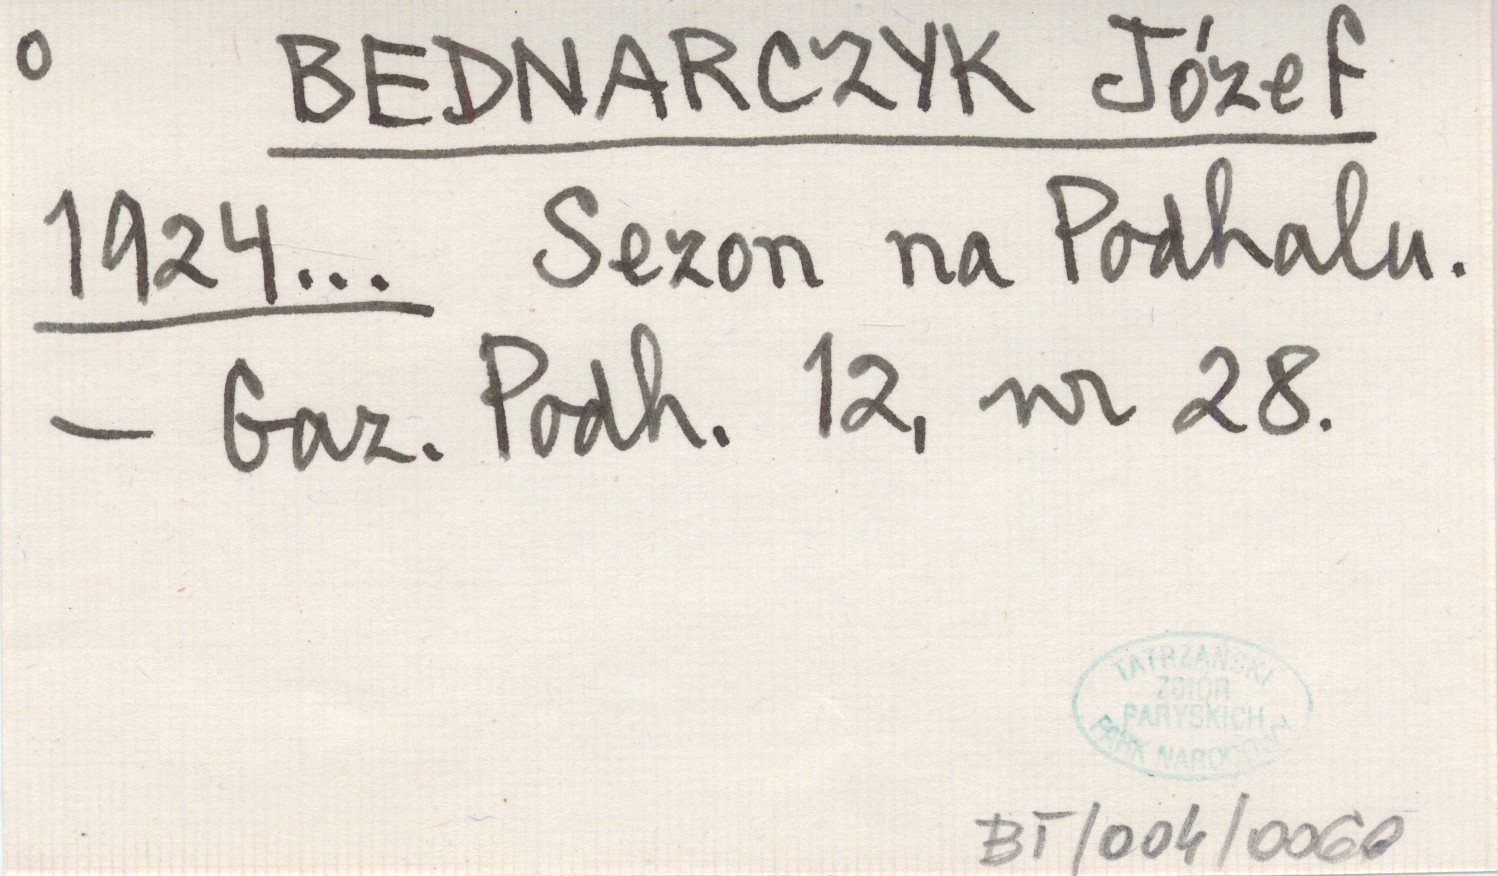 o BEDNARCZYK Józef
1924... Sezon na Podhalu.
— Gaz. Podh. 12, nr 28.
TATRZAŃSKI
ZBIÓR
PARYSKICH
PARK NARODOWY
BT/004/0060